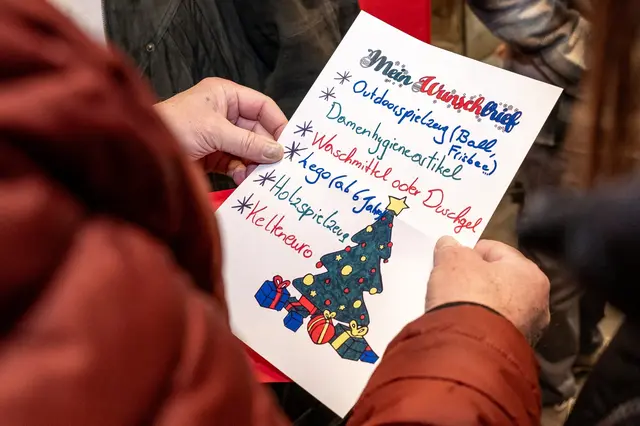 Mein Wunschbrief
Outdoorspielzeug (Ball,
Frisbee)
Damenhygieneartikel
Waschmittel oder Duschgel
Lego (ab 6 Jahre)
Holzspielzeug
Kelteneuro